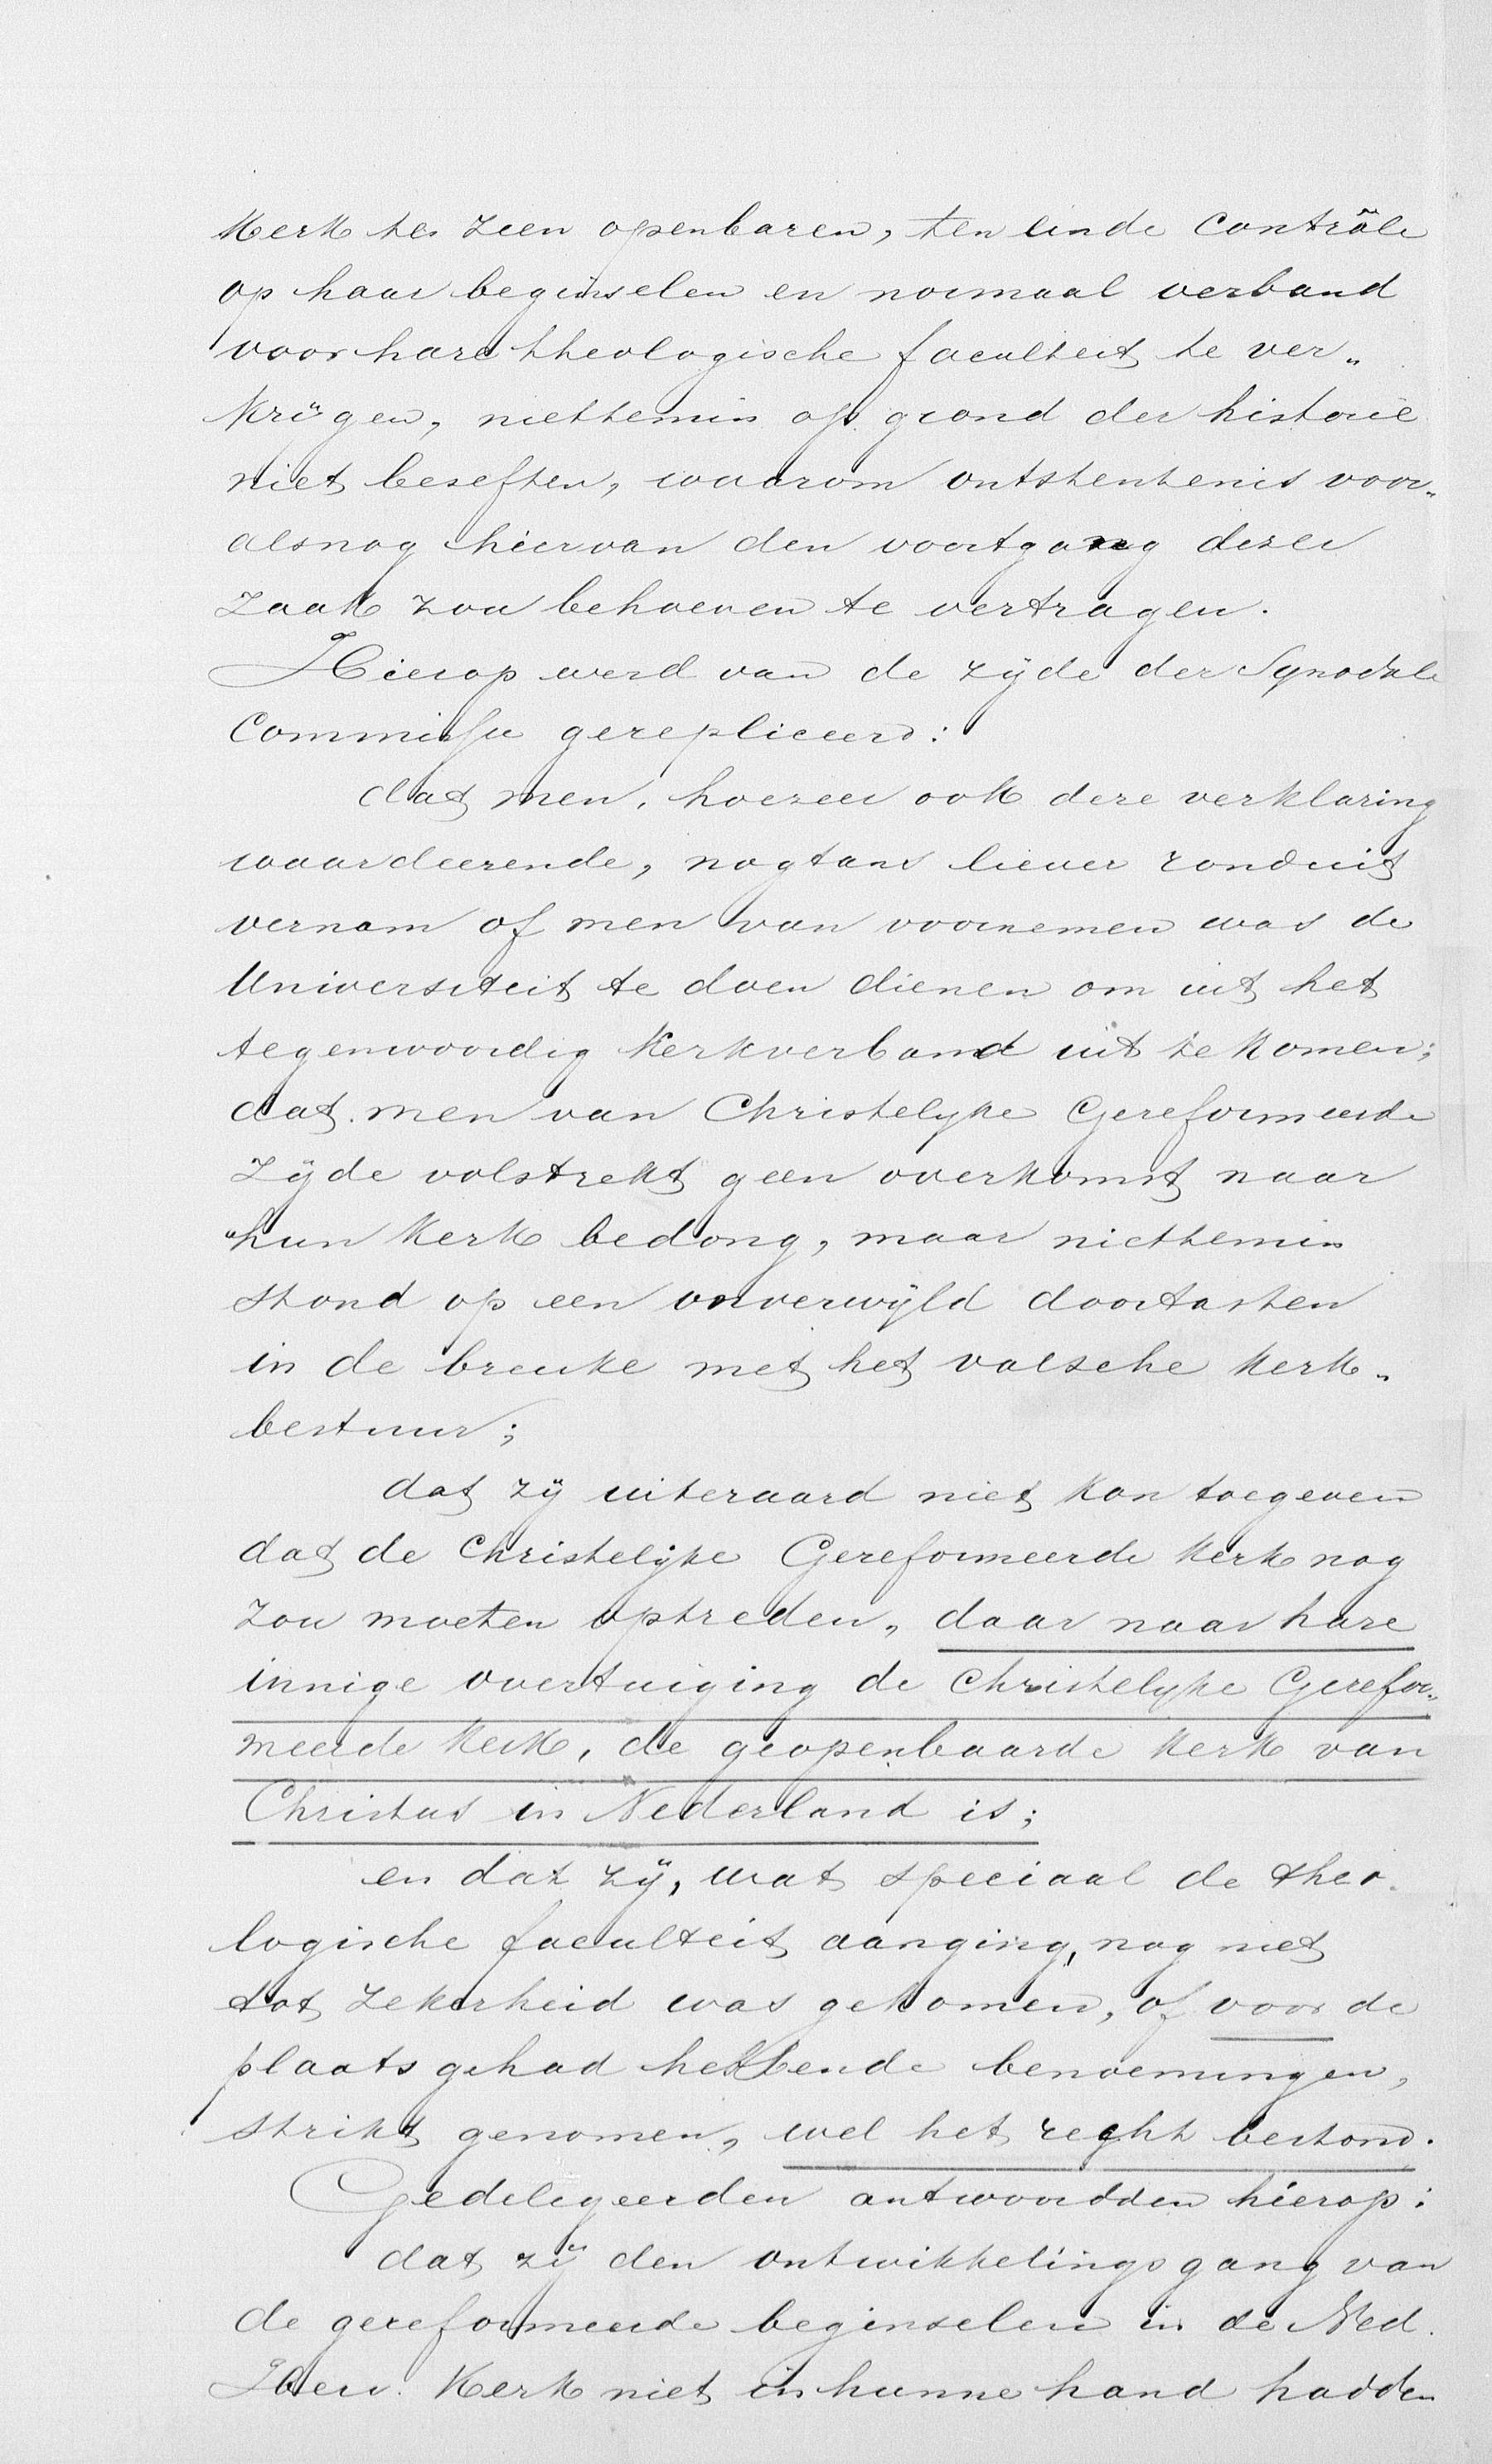 Kerk te zien openbaren, ten einde contrôle
op haar beginselen en normaal verband
voor hare theologische faculteit te ver„
krijgen, niettemin op grond der historie
niet beseften, waarom ontstentenis voor„
alsnog hiervan den voortgang dezer
zaak zou behoeven te vertragen.
Hierop werd van de zijde der Synodale
Commissie gerepliceerd:
dat men, hoezeer ook deze verklaring
waardeerende, nogtans liever ronduit
vernam of men van voornemen was de
Universiteit te doen dienen om uit het
tegenwoordig Kerkverband uit te komen;
dat men van Christelijke Gereformeerde
Zijde volstrekt geen overkomst naar
hun Kerk bedong, maar niettemin
stond op een onverwijld doortasten
in de breuke met het valsche Kerk„
bestuur;
dat zij uiteraard niet kon toegeven
dat de Christelijke Gereformeerde Kerk nog
zou moeten optreden, daar naar hare
innige overtuiging de Christelijke Gerefor„
meerde Kerk, de geopenbaarde Kerk van
Christus in Nederland is;
en dat zij, wat speciaal de theo„
logische faculteit aanging, nog niet
tot zekerheid was gekomen, of voor de
plaats gehad hebbende benoemingen,
strikt genomen, wel het reght bestond.
Gedelegeerden antwoordden hierop:
dat zij den ontwikkelingsgang van
de gereformeerde beginselen in de Ned.
Herv. Kerk niet in hunne hand hadden